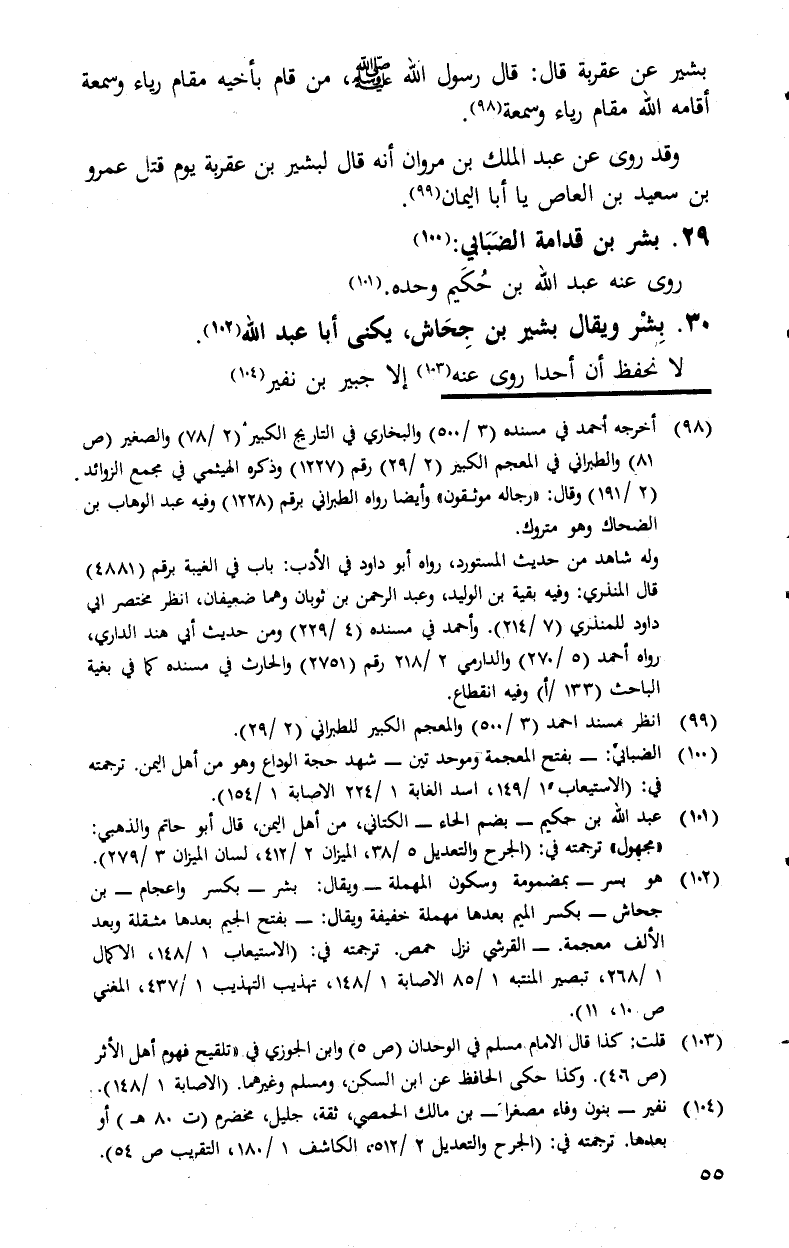 بشير عن عقربة قال: قال رسول الله ﷺ، من قام بأخيه مقام رياء وسمعة
أقامه الله مقام رياء وسمعة(٩٨).
وقد روى عن عبد الملك بن مروان أنه قال لبشير بن عقربة يوم قتل عمرو
بن سعيد بن العاص يا أبا اليمان(٩٩).
٢٩. بشر بن قدامة الضَبَابي:(١٠٠)
روى عنه عبد الله بن حُكَيم وحده.(١٠١)
٣٠. بِشْر ويقال بشير بن جِحَاش، يكنى أبا عبد الله(١٠٢).
لا نحفظ أن أحدا روى عنه(١٠٣) إلا جبير بن نفير(١٠٤)
(٩٨) أخرجه أحمد في مسنده (٣ /٥٠٠) والبخاري في التاريخ الكبير (٢ /٧٨) والصغير (ص
٨١) والطبراني في المعجم الكبير (٢ /٢٩) رقم (١٢٢٧) وذكره الهيثمي في مجمع الزوائد.
(٢ /١٩١) وقال: «رجاله موثقون» وأيضا رواه الطبراني برقم (١٢٢٨) وفيه عبد الوهاب بن
الضحاك وهو متروك.
وله شاهد من حديث المستورد، رواه أبو داود في الأدب: باب في الغيبة برقم (٤٨٨١)
قال المنذري: وفيه بقية بن الوليد، وعبد الرحمن بن ثوبان وهما ضعيفان، انظر مختصر ابي
داود للمنذري (٧ /٢١٤). وأحمد في مسنده (٤ /٢٢٩) ومن حديث أبي هند الداري،
رواه أحمد (٥ /٢٧٠) والدارمي ٢ /٢١٨ رقم (٢٧٥١) والحارث في مسنده كما في بغية
الباحث (١٣٣ /أ) وفيه انقطاع.
(٩٩) انظر مسند احمد (٣ /٥٠٠) والمعجم الكبير للطبراني (٢ /٢٩).
(١٠٠) الضبابيّ: ــ بفتح المعجمة وموحد تين ــ شهد حجة الوداع وهو من أهل اليمن. ترجمته
في: (الاستيعاب ١ /١٤٩، اسد الغابة ١ /٢٢٤ الاصابة ١ /١٥٤).
(١٠١) عبد الله بن حكيم ــ بضم الحاء ــ الكتاني، من أهل اليمن، قال أبو حاتم والذهبي:
«مجهول» ترجمته في: (الجرح والتعديل ٥ /٣٨، الميزان ٢ /٤١٢، لسان الميزان ٣ /٢٧٩).
(١٠٢) هو بسر ــ بمضمومة وسكون المهملة ــ ويقال: بشر ــ بكسر واعجام ــ بن
جحاش ــ بكسر الميم بعدها مهملة خفيفة ويقال: ــ بفتح الجيم بعدها مثقلة وبعد
الألف معجمة. ــ القرشي نزل حمص. ترجمته في: (الاستيعاب ١ /١٤٨، الاكمال
١ /٢٦٨، تبصير المنتبه ١ /٨٥ الاصابة ١ /١٤٨، تهذيب التهذيب ١ /٤٣٧، المغني
ص ١٠، ١١).
(١٠٣) قلت: كذا قال الامام مسلم في الوحدان (ص ٥) وابن الجوزي في «تلقيح فهوم أهل الأثر
(ص ٤٠٦). وكذا حكى الحافظ عن ابن السكن، ومسلم وغيرهما. (الاصابة ١ /١٤٨).
(١٠٤) نفير ــ بنون وفاء مصغرا ــ بن مالك الحمصي، ثقة، جليل، مخضرم (ت ٨٠ هـ) أو
بعدها. ترجمته في: (الجرح والتعديل ٢ /٥١٢، الكاشف ١ /١٨٠، التقريب ص ٥٤).
٥٥